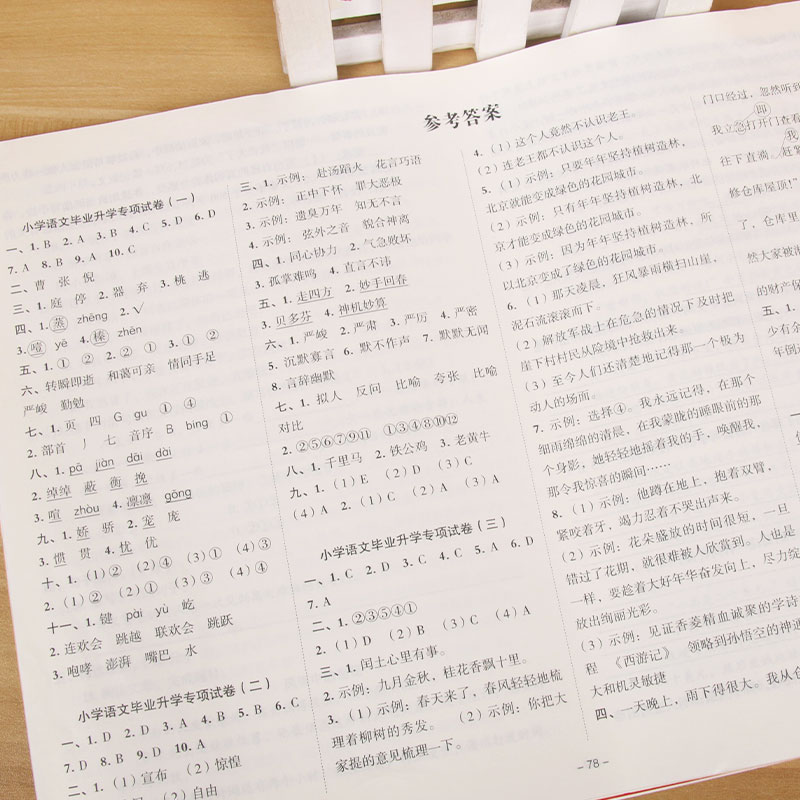 参考答案
小学语文毕业升学专项试卷（一）
一、1. B 2. A 3. B 4. C 5. D 6. D
7. A 8. B 9. A 10. C
二、曹 张 倪
三、1. 庭 停 2. 器 弃 3. 桃 逃
四、1. 蒸 zhēng 2. √
3. 噎 yē 4. 榛 zhēn
五、1. ① ② 2. ② ① 3. ① ②
六、转瞬即逝 和蔼可亲 情同手足
严峻 勤勉
七、1. 页 四 G gu ① ④
2. 部首 丿 七 音序 B bing ①
八、1. pā jiàn dāi dài
2. 绰绰 蔽 衡 挽
3. 喧 zhòu 4. 凛凛 gōng
九、1. 娇 骄 2. 宠 庞
3. 惯 贯 4. 忧 优
十、1. （1）② （2）④ （3）① （4）③
2. （1）② （2）① （3）③ （4）④
十一、1. 键 pài yù 屹
2. 连欢会 跳越 联欢会 跳跃
3. 咆哮 澎湃 嘴巴 水
小学语文毕业升学专项试卷（二）
一、1. D 2. D 3. A 4. B 5. B 6. C
7. D 8. B 9. D 10. A
二、1. （1）宣布 （2）惊惶
（2）自由
三、1. 示例：赴汤蹈火 花言巧语
2. 示例：正中下怀 罪大恶极
3. 示例：遗臭万年 知无不言
4. 示例：弦外之音 貌合神离
四、1. 同心协力 2. 气急败坏
3. 孤掌难鸣 4. 直言不讳
五、1. 走四方 2. 妙手回春
3. 贝多芬 4. 神机妙算
六、1. 严峻 2. 严肃 3. 严厉 4. 严密
5. 沉默寡言 6. 默不作声 7. 默默无闻
8. 言辞幽默
七、1. 拟人 反问 比喻 夸张 比喻
对比
2. ②⑤⑥⑦⑨⑪ ①③④⑧⑩⑫
八、1. 千里马 2. 铁公鸡 3. 老黄牛
九、1. （1）E （2）D （3）C
（4）A 2. （1）C （2）A （3）A
小学语文毕业升学专项试卷（三）
一、1. C 2. D 3. C 4. C 5. A 6. D
7. A
二、1. ②③⑤④①
2. （1）D （2）B （3）C （4）A
三、1. 闰土心里有事。
2. 示例：九月金秋，桂花香飘十里。
3. （1）示例：春天来了，春风轻轻地梳
理着柳树的秀发。 （2）示例：你把大
家提的意见梳理一下。
4. （1）这个人竟然不认识老王。
（2）连老王都不认识这个人。
5. （1）示例：只要年年坚持植树造林，
北京就能变成绿色的花园城市。
（2）示例：只有年年坚持植树造林，北
京才能变成绿色的花园城市。
（3）示例：因为年年坚持植树造林，所
以北京变成了绿色的花园城市。
6. （1）那天凌晨，狂风暴雨横扫山崖，
泥石流滚滚而下。
（2）解放军战士在危急的情况下及时把
崖下村村民从险境中抢救出来。
（3）至今人们还清楚地记得那一个极为
动人的场面。
7. 示例：选择④。我永远记得，在那个
细雨绵绵的清晨，在我蒙眬的睡眼前的那
个身影，她轻轻地摇着我的手，唤醒我，
那令我惊喜的瞬间……
8. （1）示例：他蹲在地上，抱着双臂，
紧咬着牙，竭力忍着不哭出声来。
（2）示例：花朵盛放的时间很短，一旦
错过了花期，就很难被人欣赏到。人也是
一样，要趁着大好年华奋发向上，尽力绽
放出绚丽光彩。
（3）示例：见证香菱精血诚聚的学诗
程 《西游记》 领略到孙悟空的神通
大和机灵敏捷
四、一天晚上，雨下得很大。我从仓
门口经过，忽然听到
即
我立急打开门查看
我
往下直淌。赶紧
修仓库屋顶！"
了，仓库里
然大家被
的财产保
五、1.
少有余
年倒
一
-78-